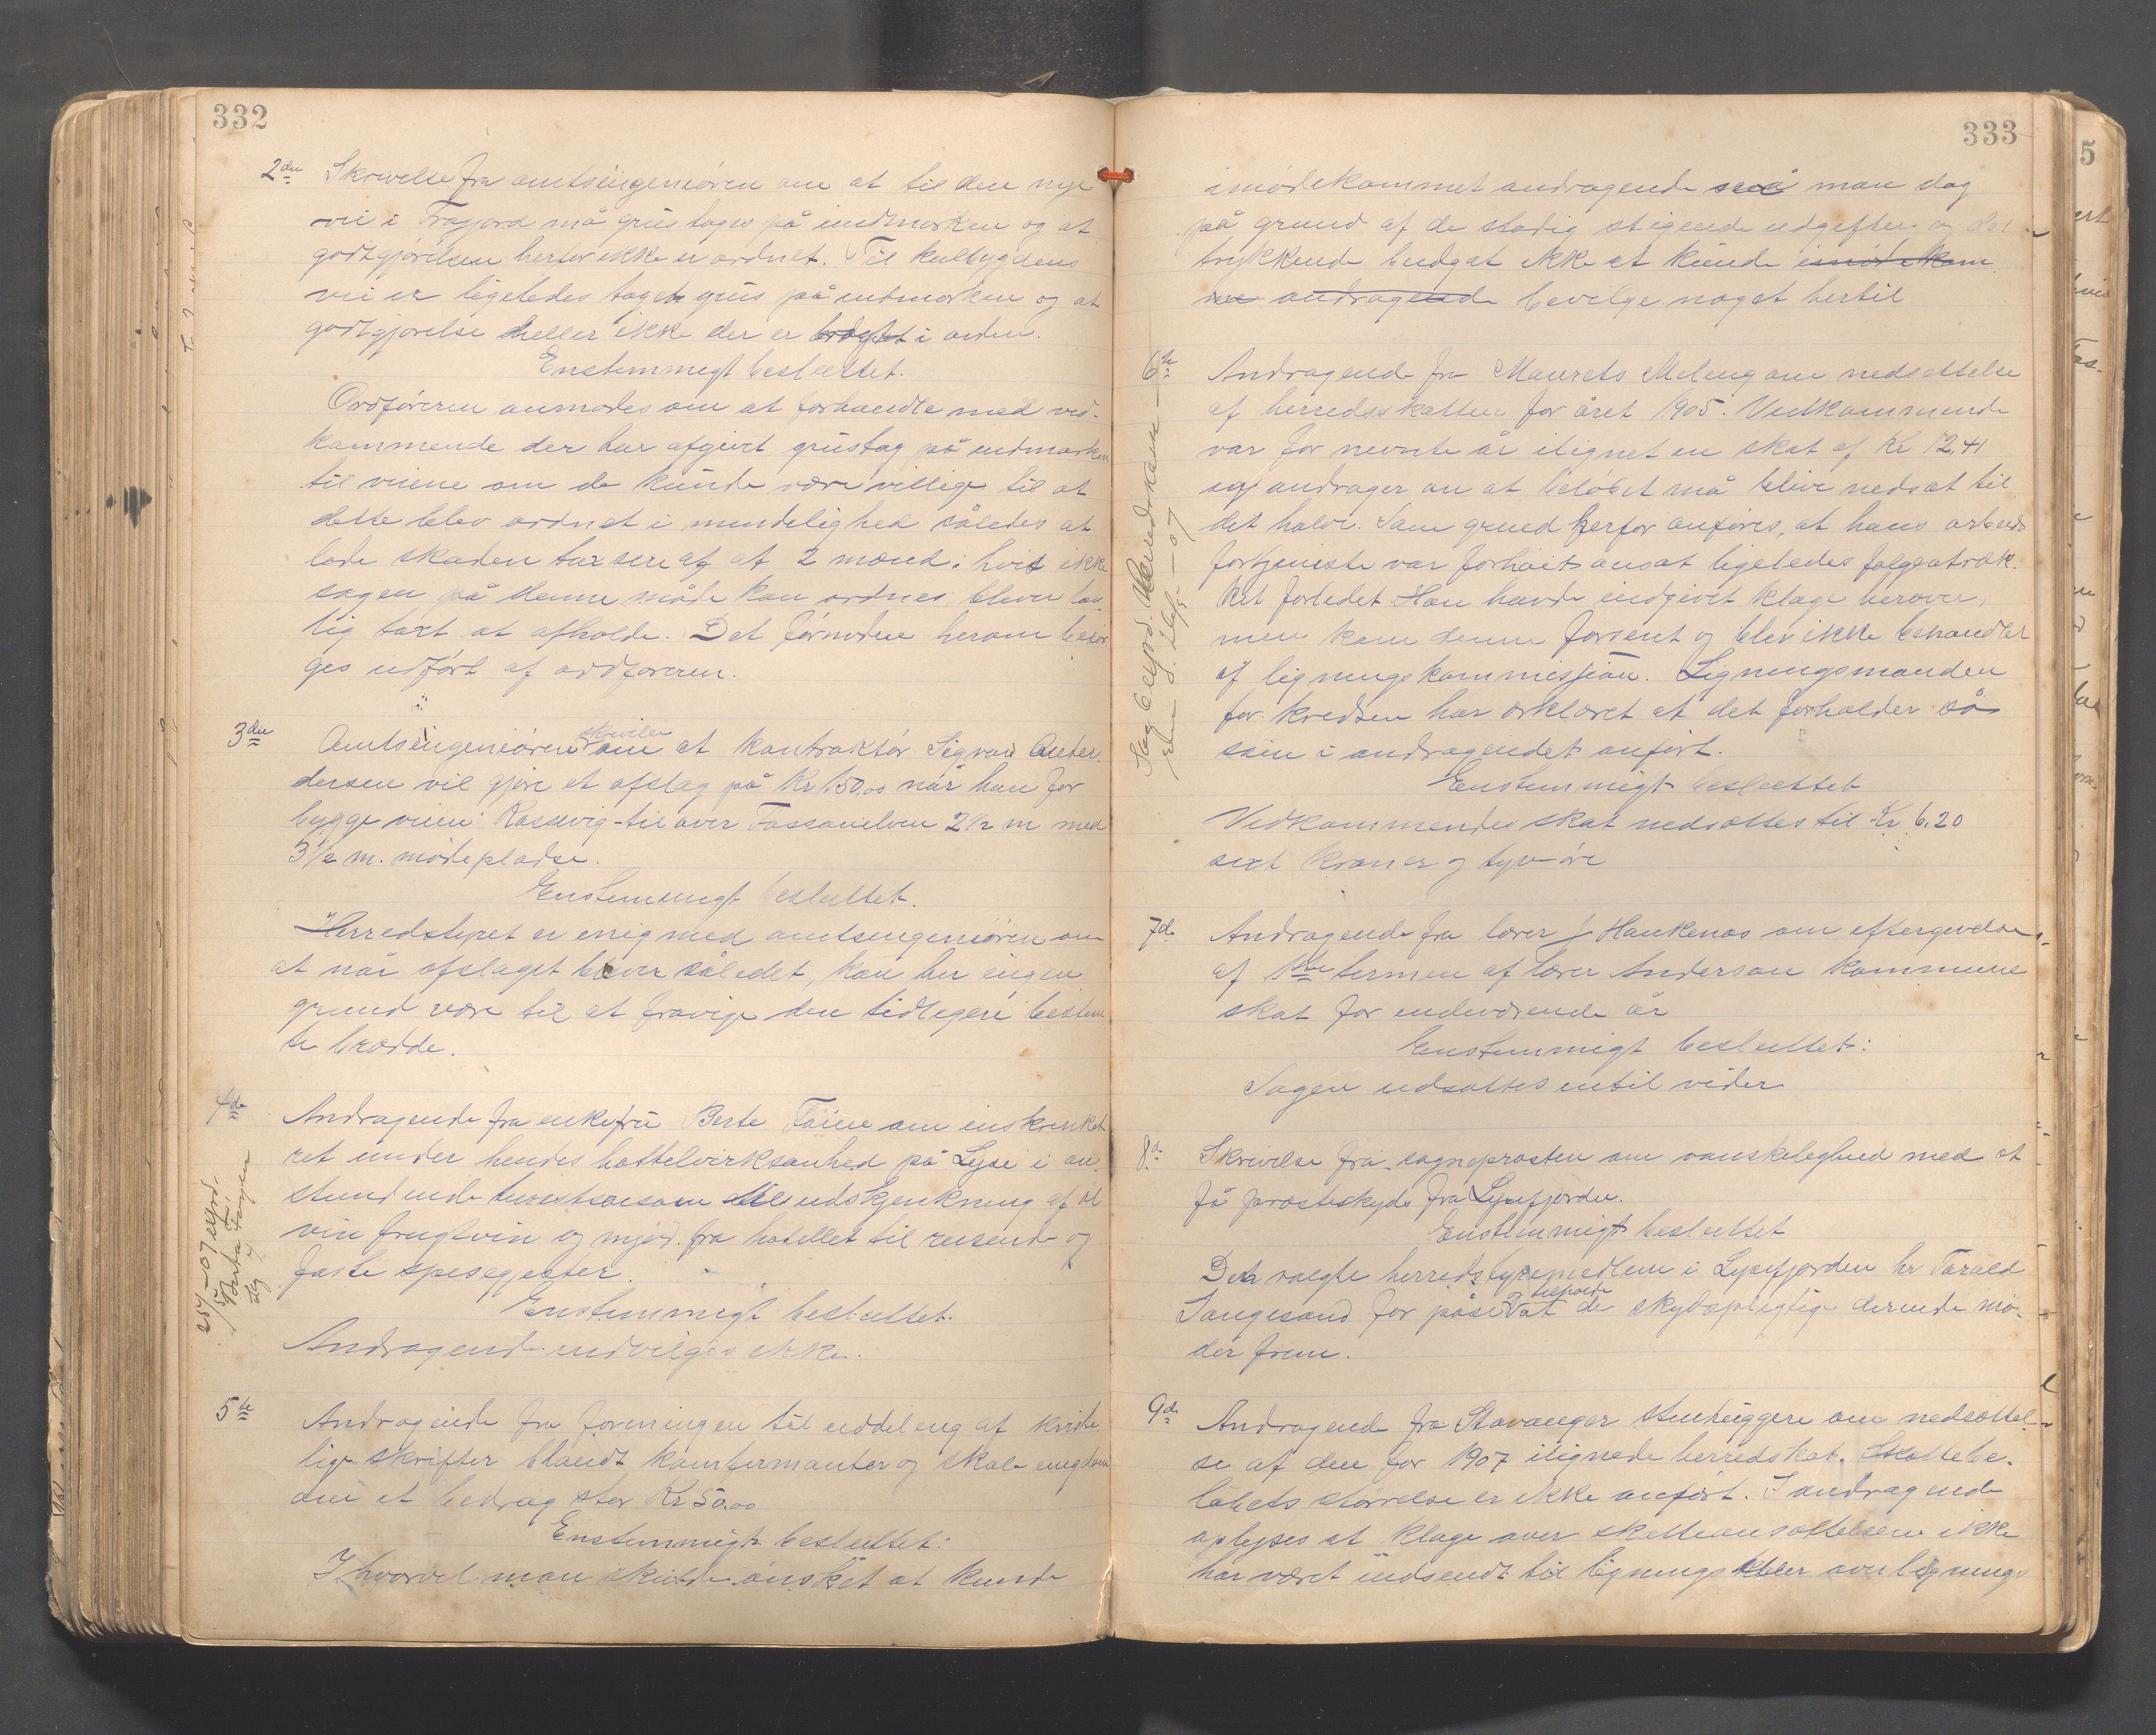 332
2den Skrivelse fra amtsingeniøren om at til den nye
vei i Frafjord må grus tages på indmarken og at
godtgjørelsen herfor ikke er ordnet. Til kulbygdens
vei er ligeledes taget grus på indmarken og at
godtgjørelse heller ikke der er bragt i orden.
Enstemmigt besluttet.
Ordføreren anmodes om at forhandle med ved-
kommende der har afgivt grustag på indmarken
til veiene om de kunde være villige til at
dette blev ordnet i mindelighed således at
lade skaden taxsere af 2 mænd; hvis ikke
sagen på denne måde kan ordnes bliver lov-
lig taxt at afholde. Det fornødne herom besør-
ges udført af ordføreren.
3die Amtsingeniøren skriver om at kontraktør Sigvard Ander-
dersen vil gjøre et afslag på Kr 150,00 når han for
bygge veien Rossavig til over Fossanelven 2 1/2 m med
3 1/2 m. mødepladse.
Enstemmigt besluttet.
Herredstyret er enig med amtsingeniøren om
at når afslaget bliver således, kan her ingen
grund være til at fravige den tidligere bestem-
te bredde.
4de Andragende fra enkefru Berte Tøien om inskrenket
ret under hendes hottelvirksomhed på Lyse i an-
stundende turestsæson til udskjenkning af øl
vin frugtvin og mjød fra hotellet til reisende og
faste spisegjester.
Enstemmigt besluttet.
Andragende indvilges ikke.
25/5 – 07 expd.
5te Andragende fra foreningen til uddeling af kriste-
lige skrifter blandt konfirmanter og skoleungdom
om et bedrag stor Kr 50,00
Enstemmigt besluttet:
Ihvorvel man skulde ønsket at kunde
333
imødekommet andragende så man dog
på grund af de stadig stigende udgifter og det
trykkende budget ikke at kunde imødekom
me andragende bevilge noget hertil
6te Andragende fra Maurets Meling om nedsettelse
af herredsskatten for året 1905. Vedkommende
var for nevnte år ilignet en skat af Kr 12,41
og andrager om at beløbet må blive nedsat til
det halve. Som grund herfor anføres, at hans arbeids
fortjeneste var forhøit ansat ligeledes følgeatræk-
ket forledet. Han havde indgivet klage herover,
men kom denne forsent og blev ikke behandlet
af ligningskommissjon. Ligningsmanden
for kredsen har erklæret at det forholder så
som i andragendet anført.
Enstemmigt besluttet
Vedkommendes skat nedsættes til Kr 6.20
sext kroner og tyve øre
7de Andragende fra lærer J Haukenæs om eftergivelse
af 1ste termen af lærer Anderson kommune
skat for indeværende år
Enstemmigt besluttet:
Sagen udsættes indtil videre
8de Skrivelse fra sognepræsten om vanskelighed med at
få præsteskyds fra Lysefjorden.
Enstemmigt besluttet
Det valgte herredstyremedlem i Lysefjorden hr Tarald
Songesand for påse og tilholde at de skydspligtige derinde mø-
der frem.
9de Andragende fra Stavanger stenhuggere om nedsættel-
se af den for 1907 ilignede herredskat. Skattebe-
løbets størrelse er ikke anført. I andragende
oplyses at klage over skatteansættelsen ikke
har været indsendt til lignings eller overlignings